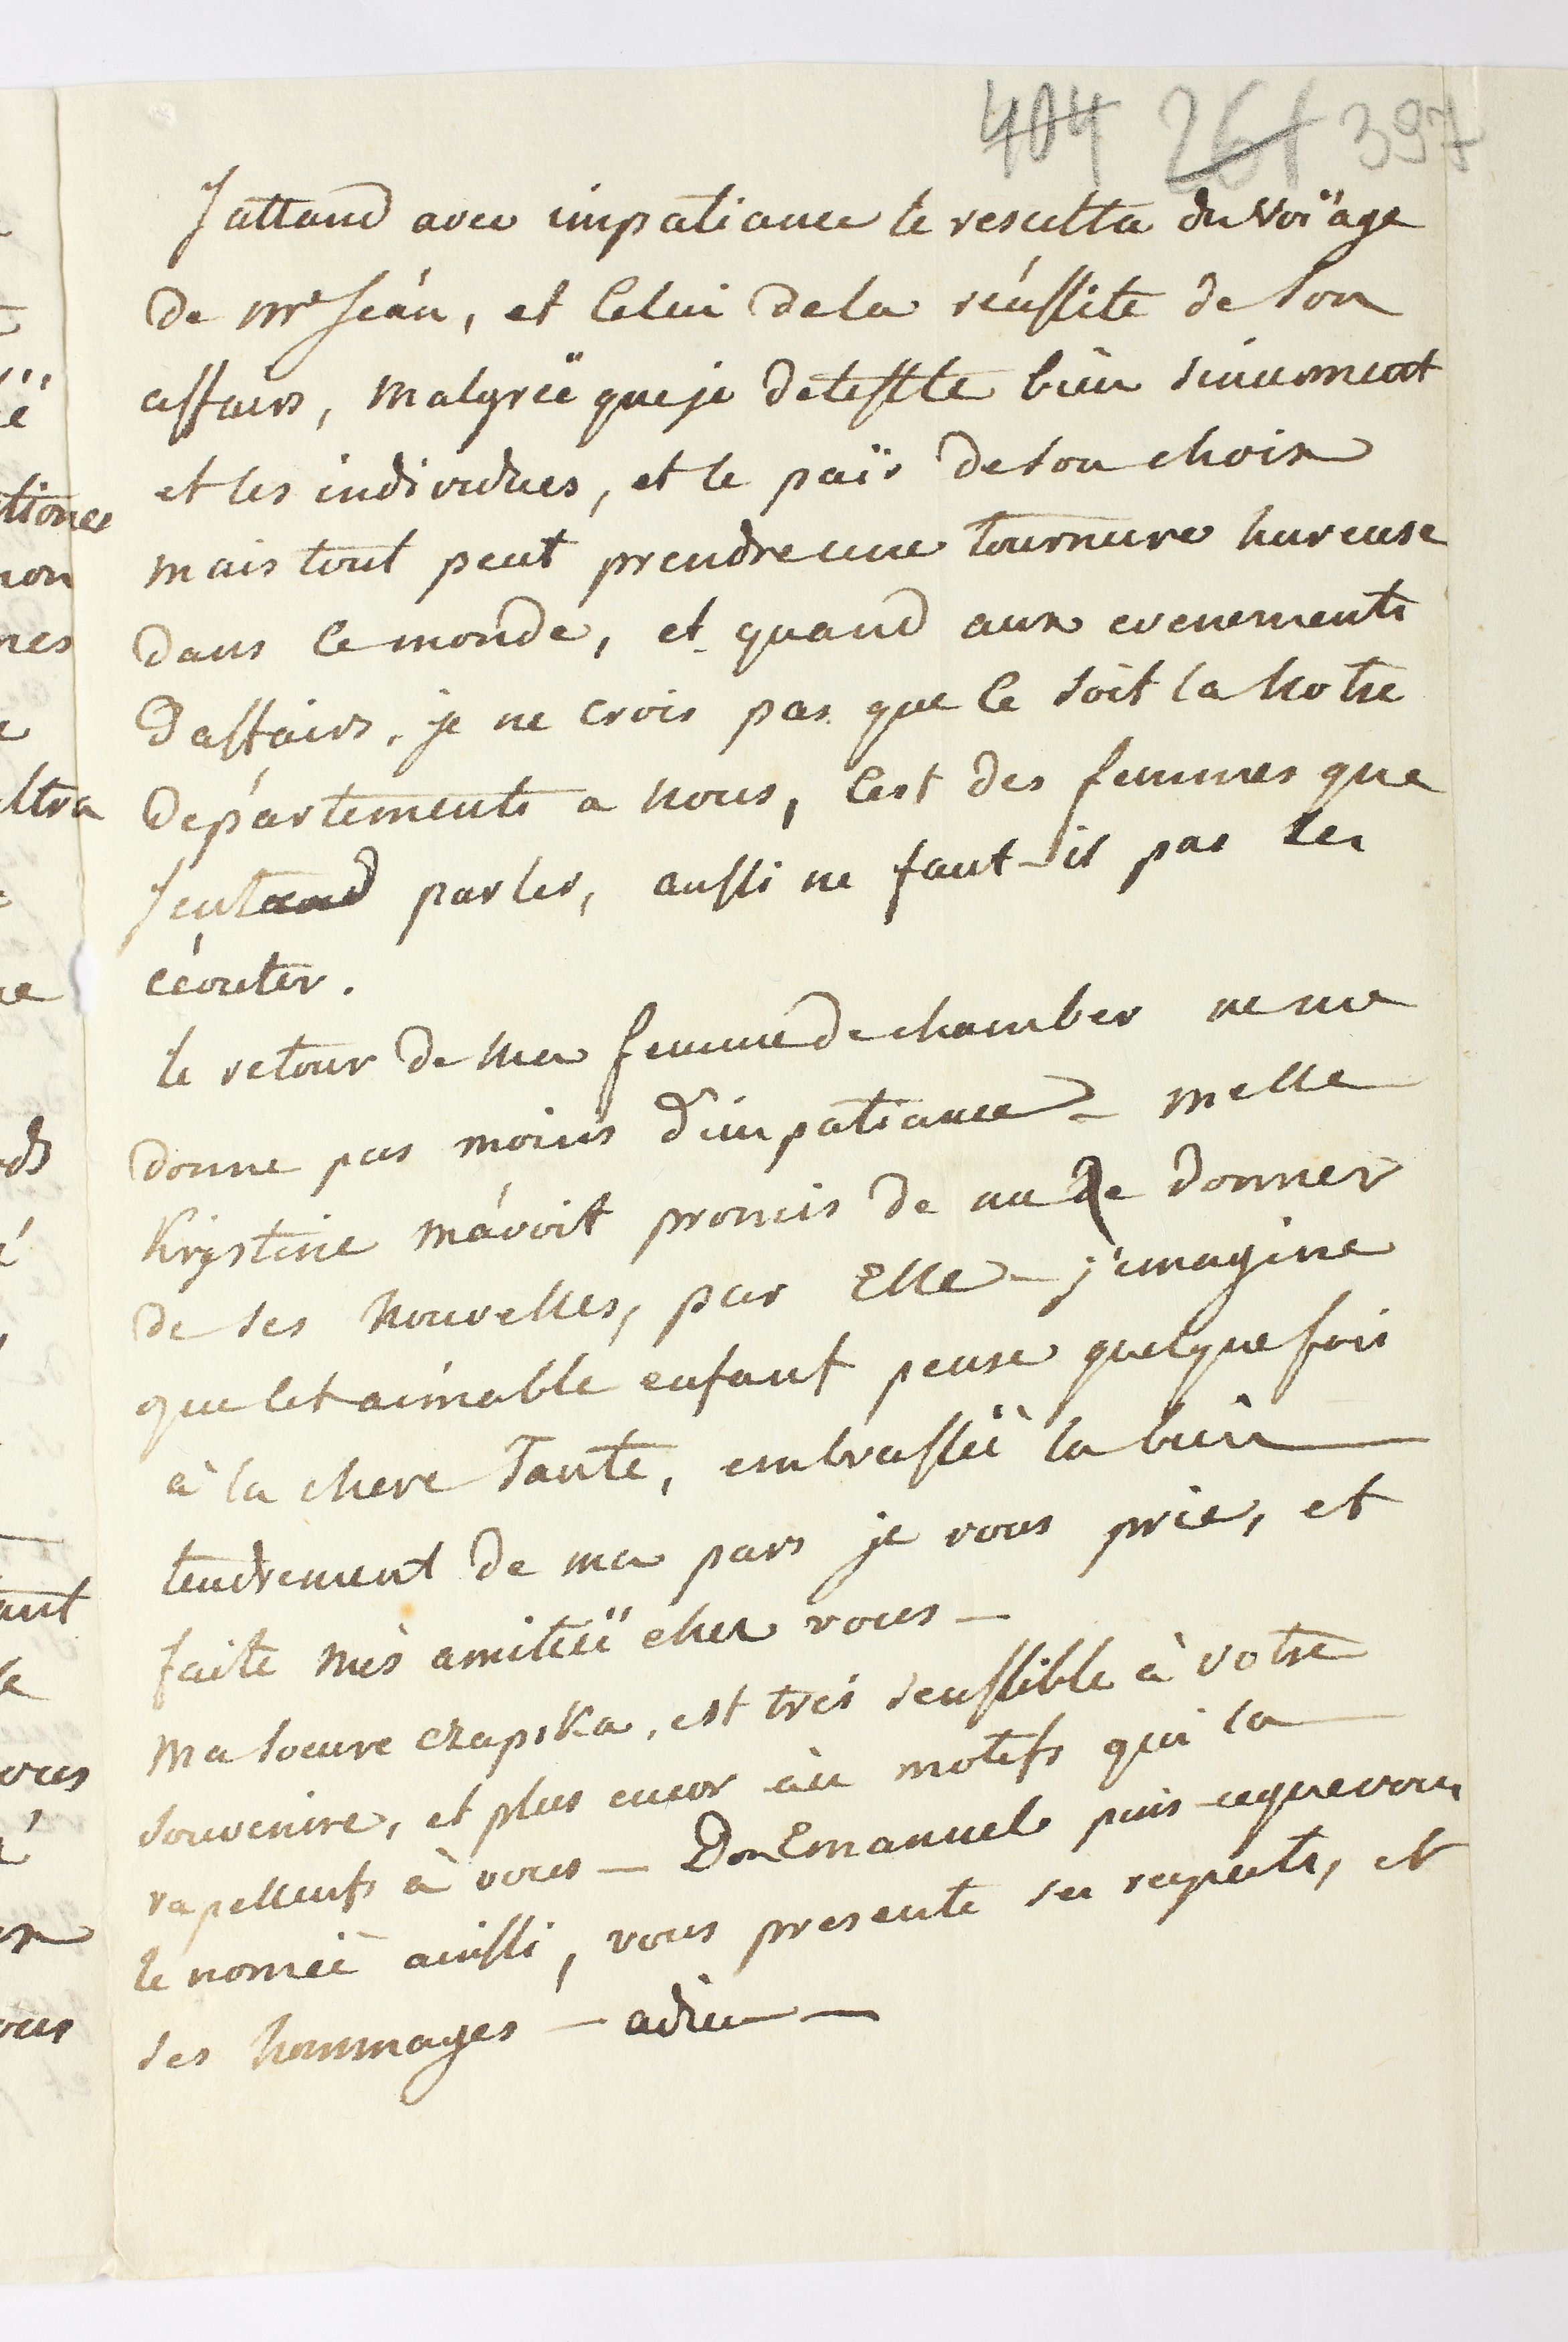 404 261 397
Jattand avec impatiance le resultta du Voïage
de Mr Jeàn, et Celui dela réussite de son
affairs, malgréë queje detesste bien sincerment
et les individues, et le païs deson choix
mais tout peut prendre une tournure hureuse
dans ce monde, et quand aux evenements
Daffairs, je ne crois pas que ce soit la notre
Departements a nous, Cest des femmes que
Jentand parler, aussi ne faut-il pas les
écouter.
le retour de ma femme de chamber ne me
donne pas moins d'impatiance - Melle
Krystine màvoit promis de me de donner
de ses nouvelles, par Elle - j'imagine
que cet aimable enfant pense quelque fois
à la chere Tante, embrasséë la bien
tendrement de ma pars je vous prie, et
faite mès amitéë chez vous -
Ma soeure Czapska, est très senssible à votre
souvenire, et plus encor àu motifs qui la
rapellents à vous - Don Emanuel puis ceque vous
le noméë ainssi, vous presente ses respects, et
ses hommages - adieu -
tionee
non
nes
ltra
ds
ant
vous
ous